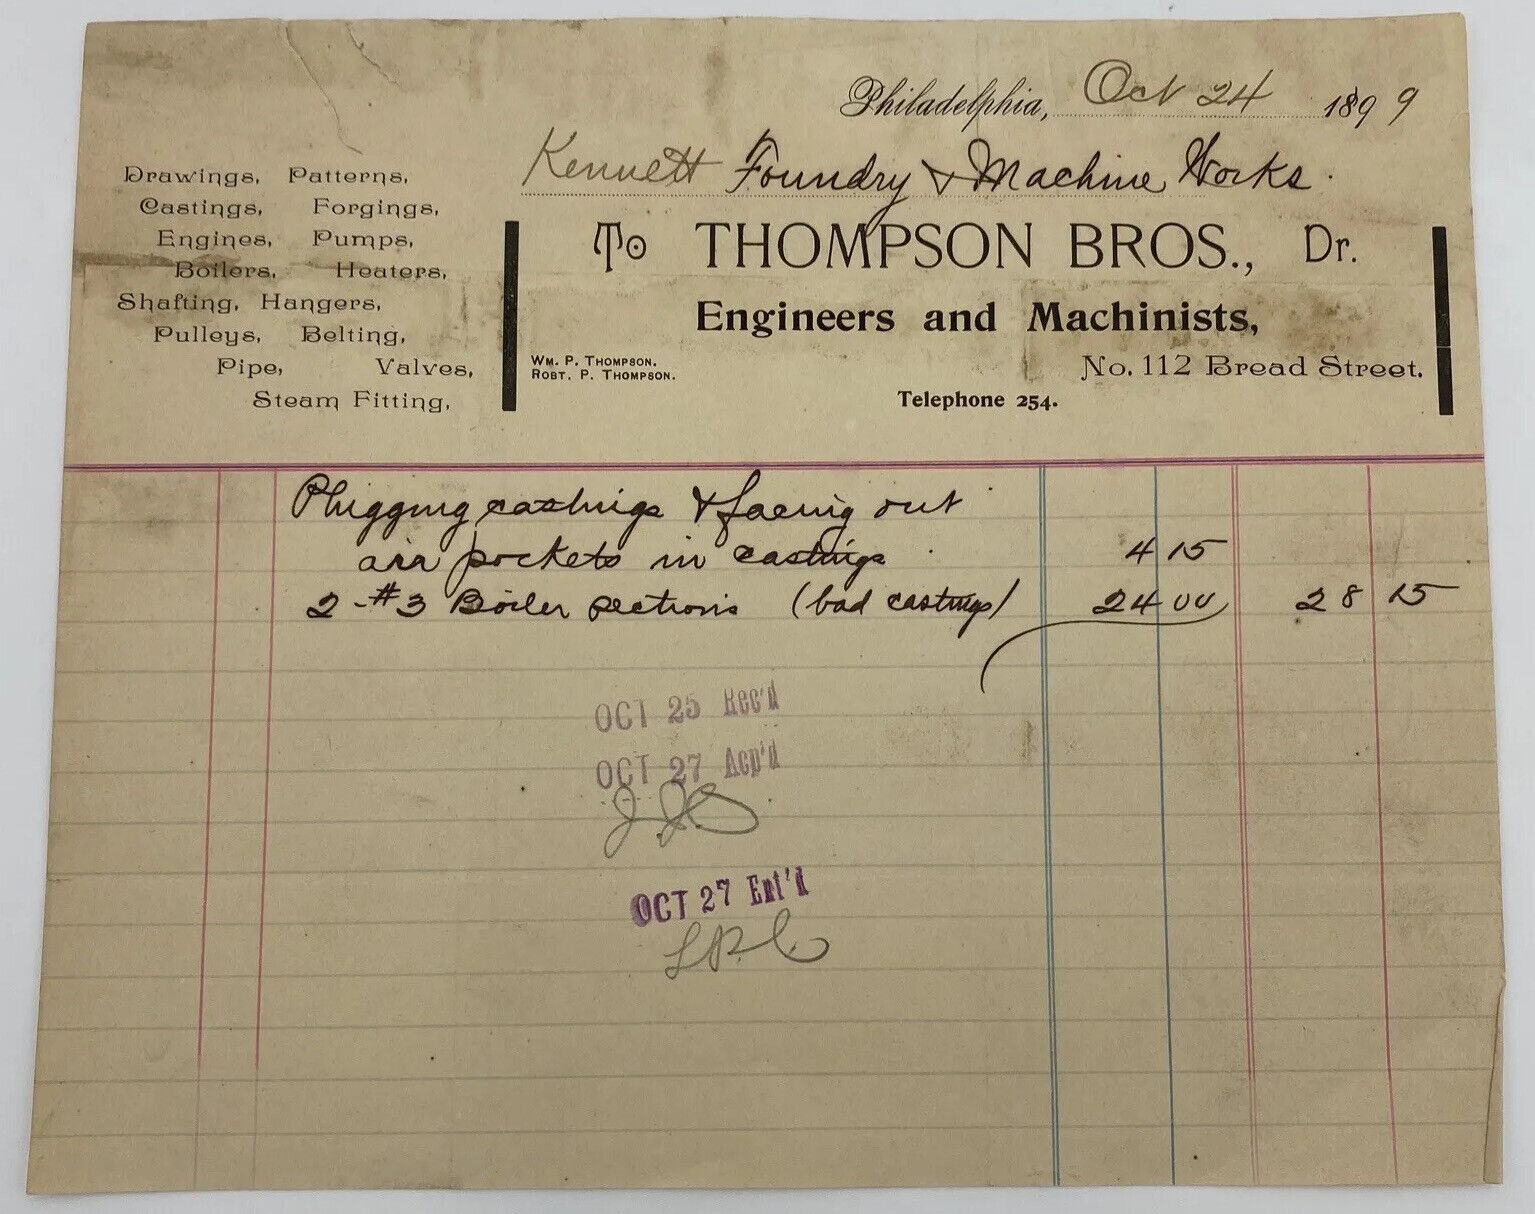 Philadelphia, Oct 24 1899
Kennett Foundry & Machine Works.
Drawings, Patterns,
Castings, Forgings,
Engines, Pumps,
Boilers, Heaters,
Shafting, Hangers,
Pulleys, Belting,
Pipe, Valves,
Steam Fitting,
To THOMPSON BROS., Dr.
Engineers and Machinists,
WM. P. THOMPSON.
ROBT. P. THOMPSON.
No. 112 Bread Street.
Telephone 254.
Plugging castings & facing out
air pockets in castings 4 15
2-#3 Boiler sections (bad castings) 24 00 28 15
OCT 25 Rec'd
OCT 27 Acp'd
OCT 27 Ent'd